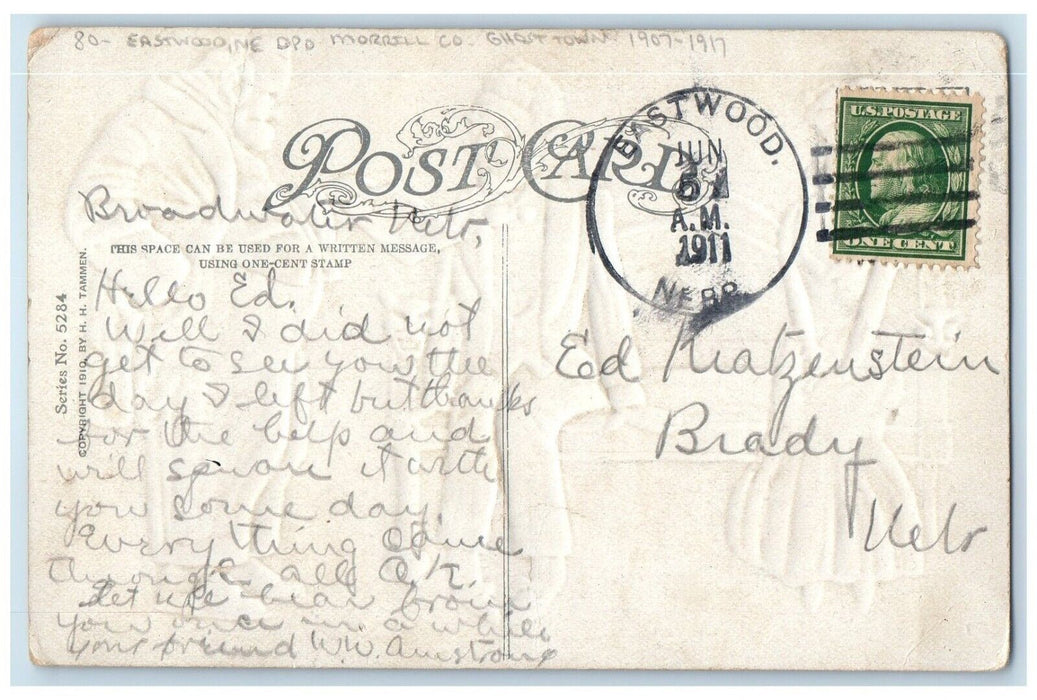 80- EASTWOOD, NE DPO MORRILL CO. GHOST TOWN 1907-1917
POST CARD
EASTWOOD.
JUN
A.M.
1911
NEBR.
U.S. POSTAGE
ONE CENT
Broadwater Nebr,
THIS SPACE CAN BE USED FOR A WRITTEN MESSAGE,
USING ONE-CENT STAMP
Series No. 5284
COPYRIGHT 1910, BY H. H. TAMMEN.
Hello Ed.
Will I did not
get to see you the
day I left but thanks
for the help and
will square it with
you some day.
Everything came
through all O.K.
Let me hear from
you once in a while
your friend W.W. Armstrong
Ed Katzenstein
Brady
Nebr